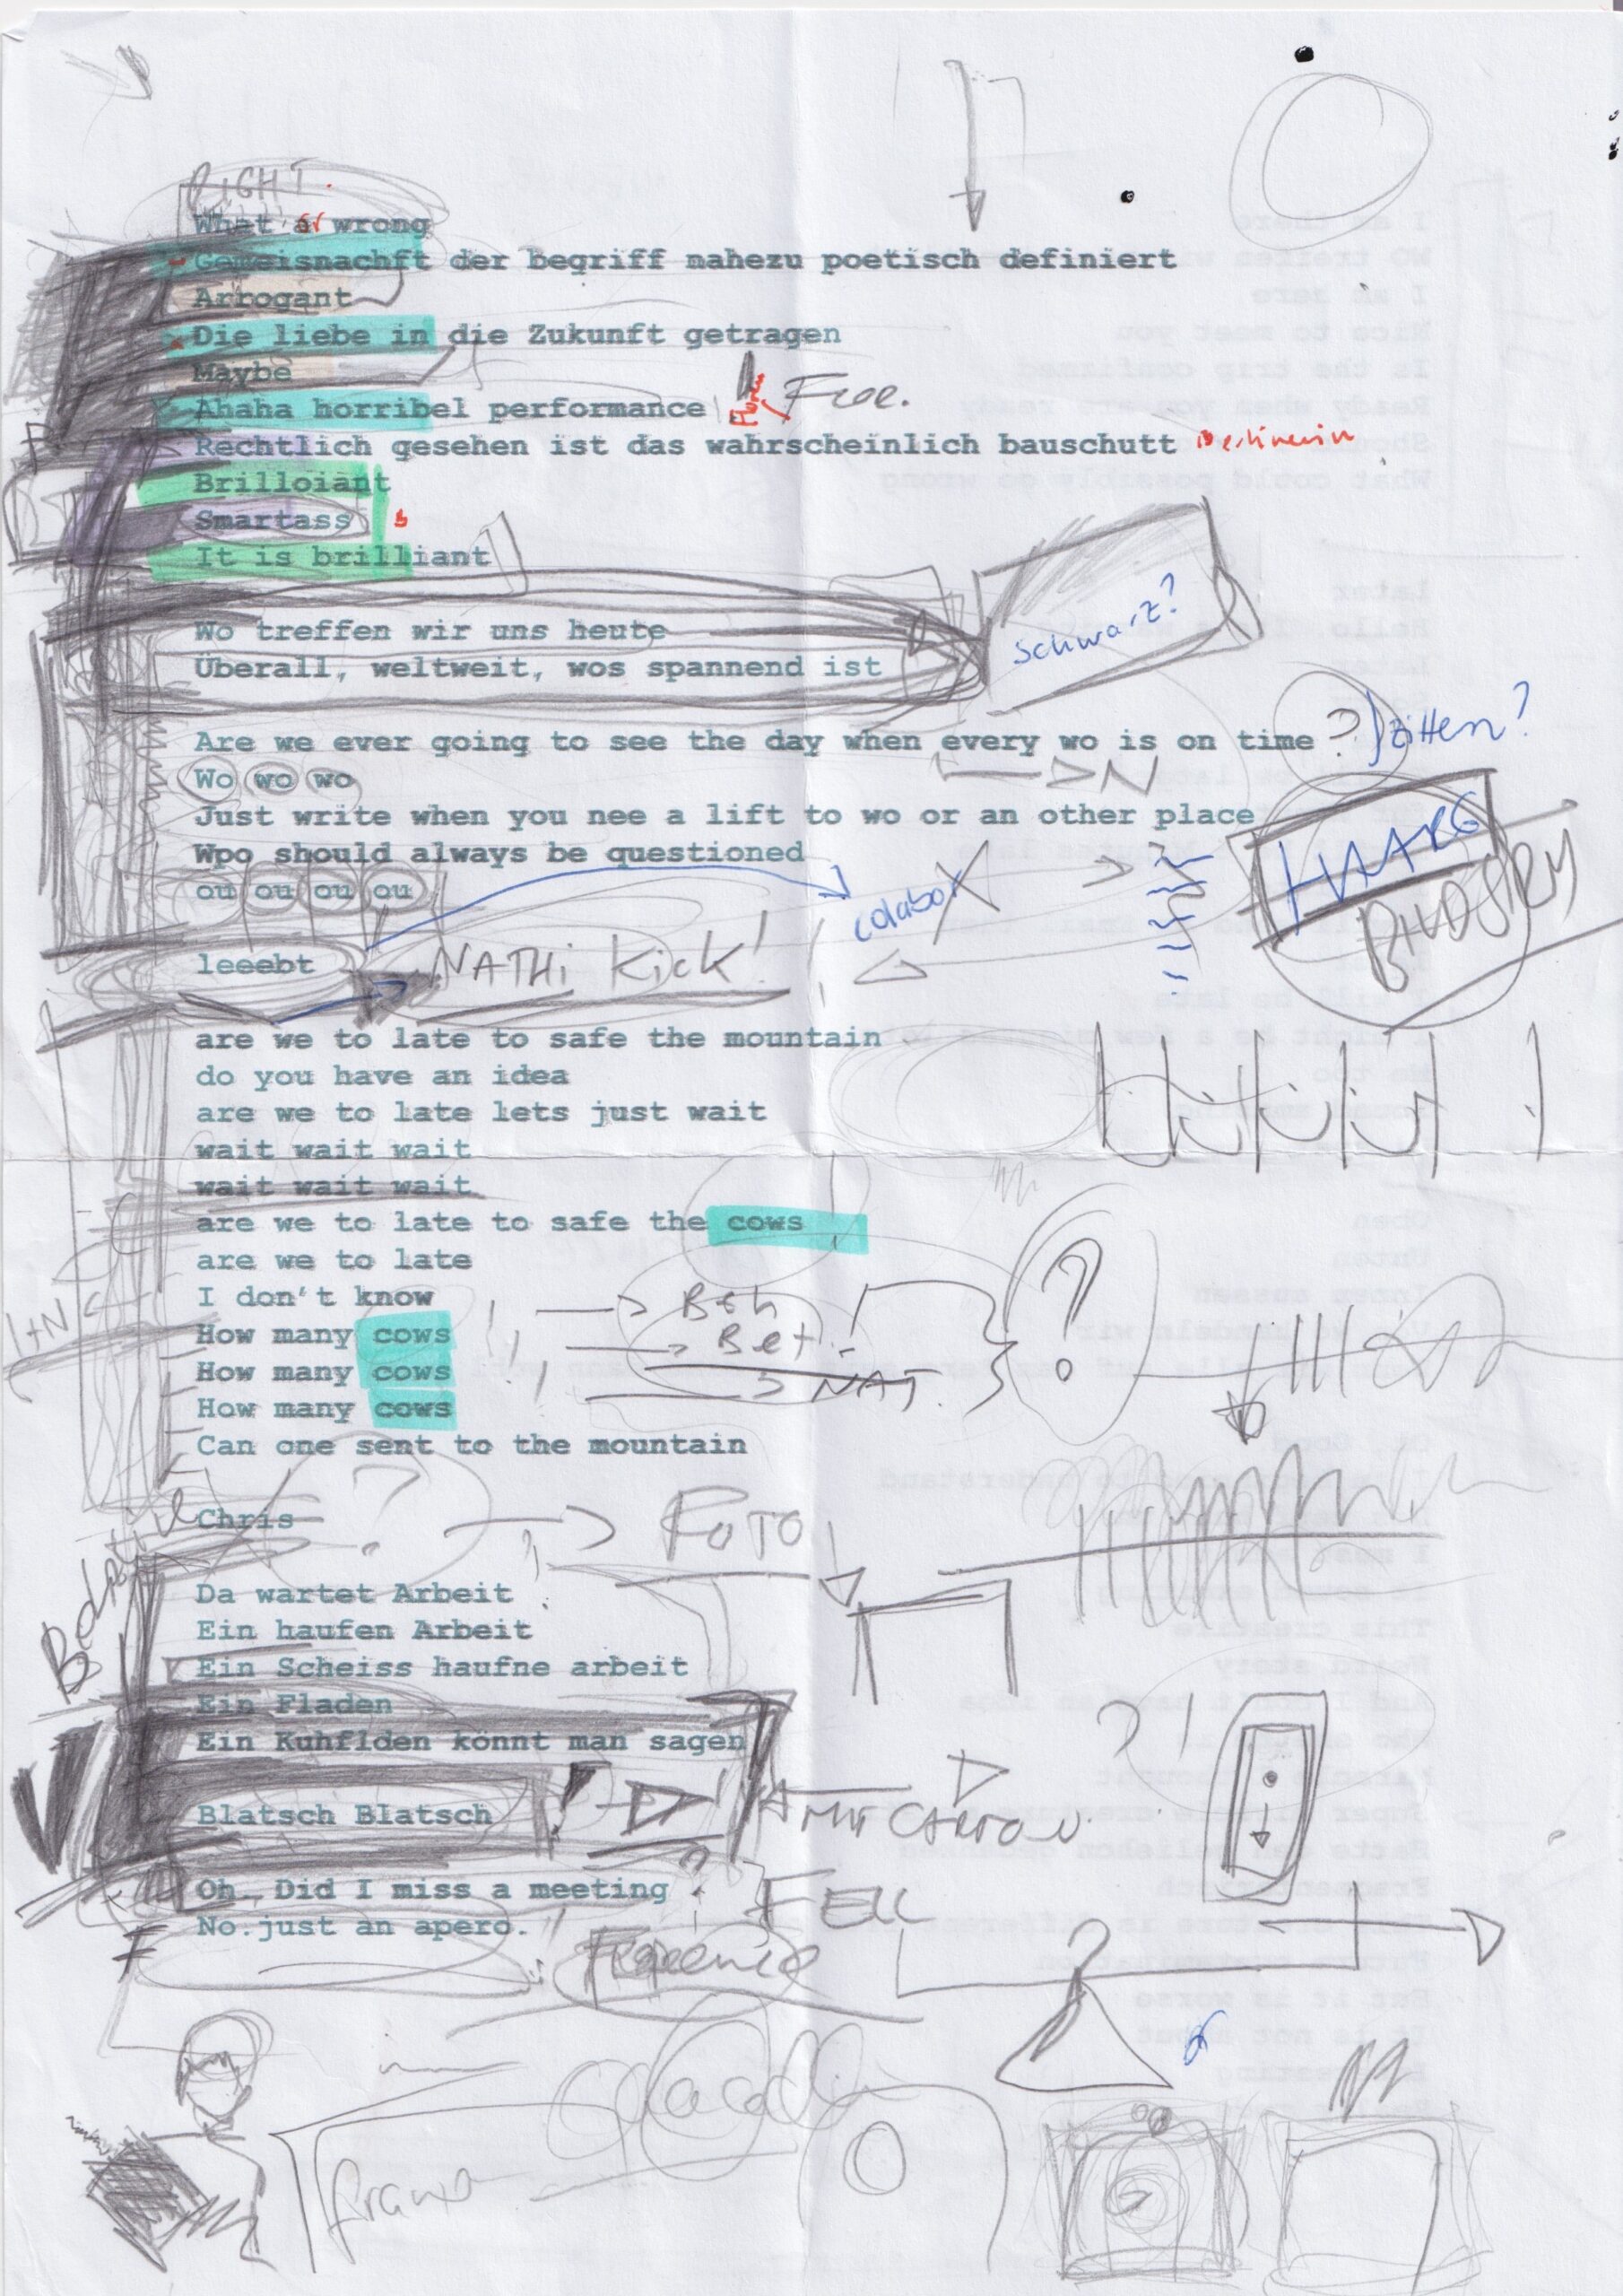 RIGHT
What ar wrong
Gemeisnachft der begriff nahezu poetisch definiert
Arrogant
Die liebe in die Zukunft getragen
Maybe
Ahaha horribel performance
Rechtlich gesehen ist das wahrscheinlich bauschutt Berlinerin
Brilloiant
Smartass
It is brilliant
Wo treffen wir uns heute
schwarz?
Überall, weltweit, wos spannend ist
Are we ever going to see the day when every wo is on time ? zittern?
Wo wo wo
Just write when you nee a lift to wo or an other place
Wpo should always be questioned
ou ou ou ou
colabor
leeebt
NATHi Kick!
are we to late to safe the mountain
do you have an idea
are we to late lets just wait
wait wait wait
wait wait wait
are we to late to safe the cows
are we to late
I don't know
How many cows
How many cows
How many cows
Beh
Bet
NAT.
?
Can one sent to the mountain
Chris
? FOTO
Da wartet Arbeit
Ein haufen Arbeit
Ein Scheiss haufne arbeit
Ein Fladen
Ein Kuhflden könnt man sagen
? !
Blatsch Blatsch
MIT CARTON
Oh. Did I miss a meeting
FELL
No.just an apero.